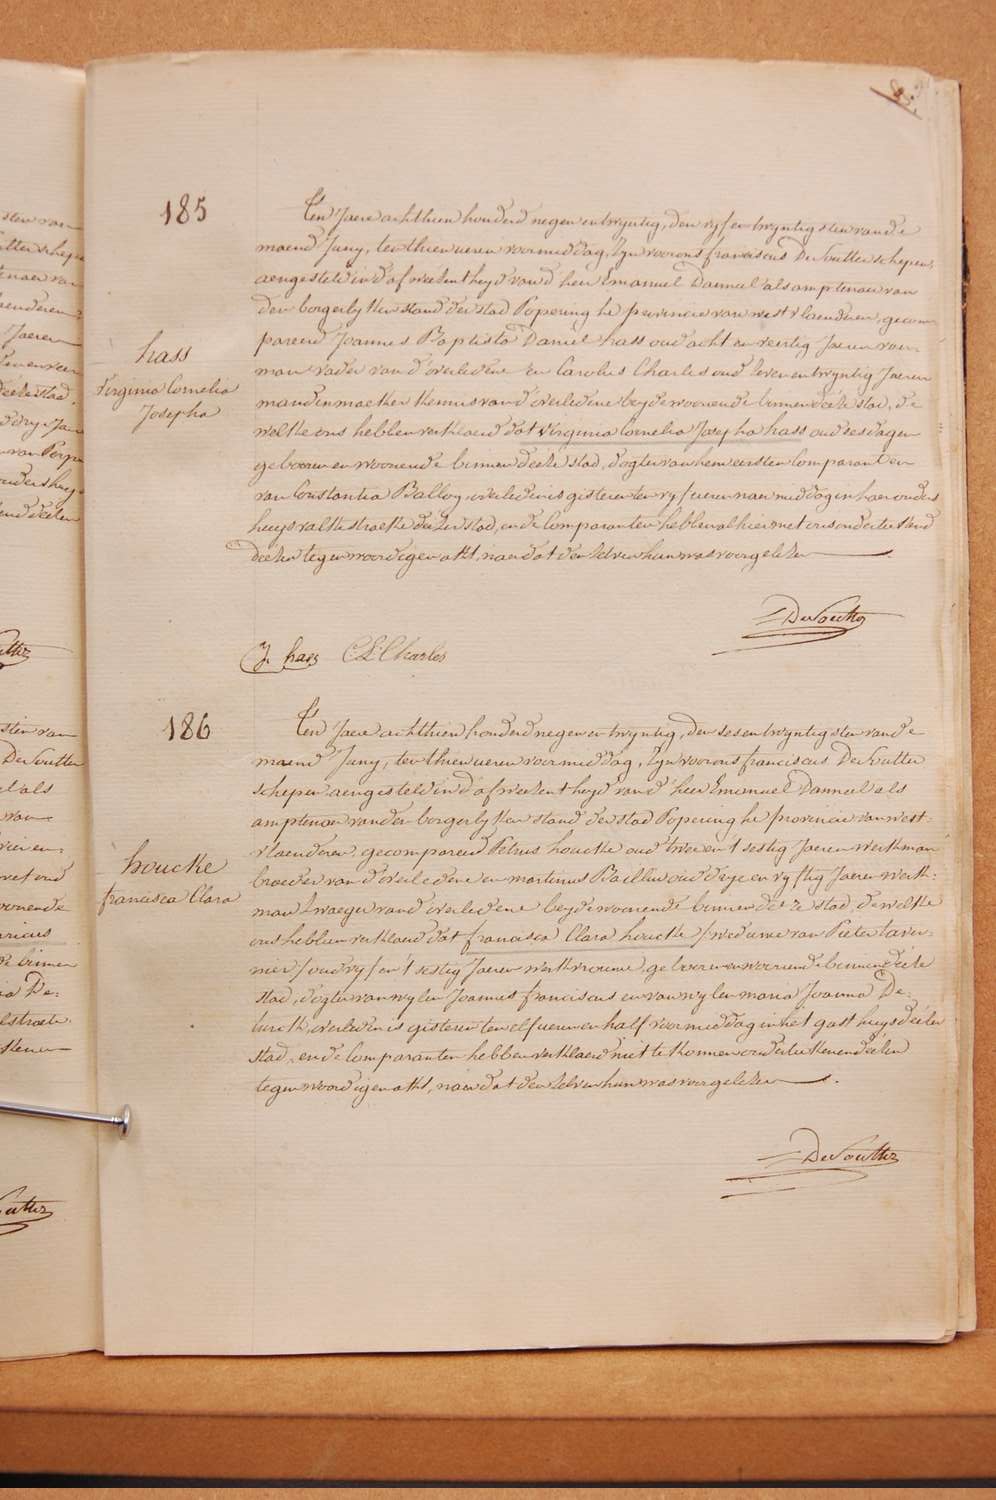 85.
185
Ten Jaere achthien honderd negen en twyntig, den vyf en twyntigsten van de
maend Juny, ten thien ueren voormiddag, Zyn voor ons franciscus De Soutter schepen,
aengesteld in d'afweesentheyd van d'heer Emanuel Dannel als amptenaer van
den borgerlyken stand der stad Poperinghe provincie van westvlaenderen, gecom-
pareerd Joannes Baptista Daniel hass oud acht en veertig Jaeren voer-
man vader van d'overledene en Carolus Charles oud seven en twyntig Jaeren
mandenmaeker kennis van d'overledene beyde woonende binnen deeze stad, de
welke ons hebben verklaerd dat Virginia Cornelia Josepha hass oud ses dagen
gebooren en woonende binnen deeze stad, dogter van hem eersten Comparant en
van Constantia Balloy, overleden is gisteren ten vyf ueren naermiddag in haer ouders
huys valkestraete deezer stad, en de Comparanten hebben alhier met ons onderteekend
deezen tegenwoordigen akt, naer dat den zelven hun was voorgelezen.
hass
Virginia Cornelia
Josepha
De Soutter
J. hass C. L. Charles
186
Ten Jaere achthien honderd negen en twyntig, den ses en twyntigsten van de
maend Juny, ten thien ueren voormiddag, Zyn voor ons franciscus De Soutter
schepen aengesteld in d'afweesentheyd van d'heer Emanuel Dannel als
amptenaer van den borgerlyken stand der stad Poperinghe provincie van west-
vlaenderen, gecompareerd Petrus houcke oud twee en t'sestig Jaeren werkman
broeder van d'overledene en martinus Baillieu oud drye en vyftig Jaeren werk-
man Zwaeger van d'overledene beyde woonende binnen deeze stad, de welke
ons hebben verklaerd dat francisca Clara houcke /weduwe van Pieter taver-
nier/ oud vyf en t'sestig Jaeren werkvrouwe, gebooren en woonende binnen deeze
stad, dogter van wylen Joannes franciscus en van wylen maria Joanna De-
turck, overleden is gisteren ten elf ueren en half voormiddag in het gasthuys deezer
stad, en de Comparanten hebben verklaerd niet te konnen onderteekenen deezen
tegenwoordigen akt, naer dat den zelven hun was voorgelezen.
houcke
francisca Clara
De Soutter